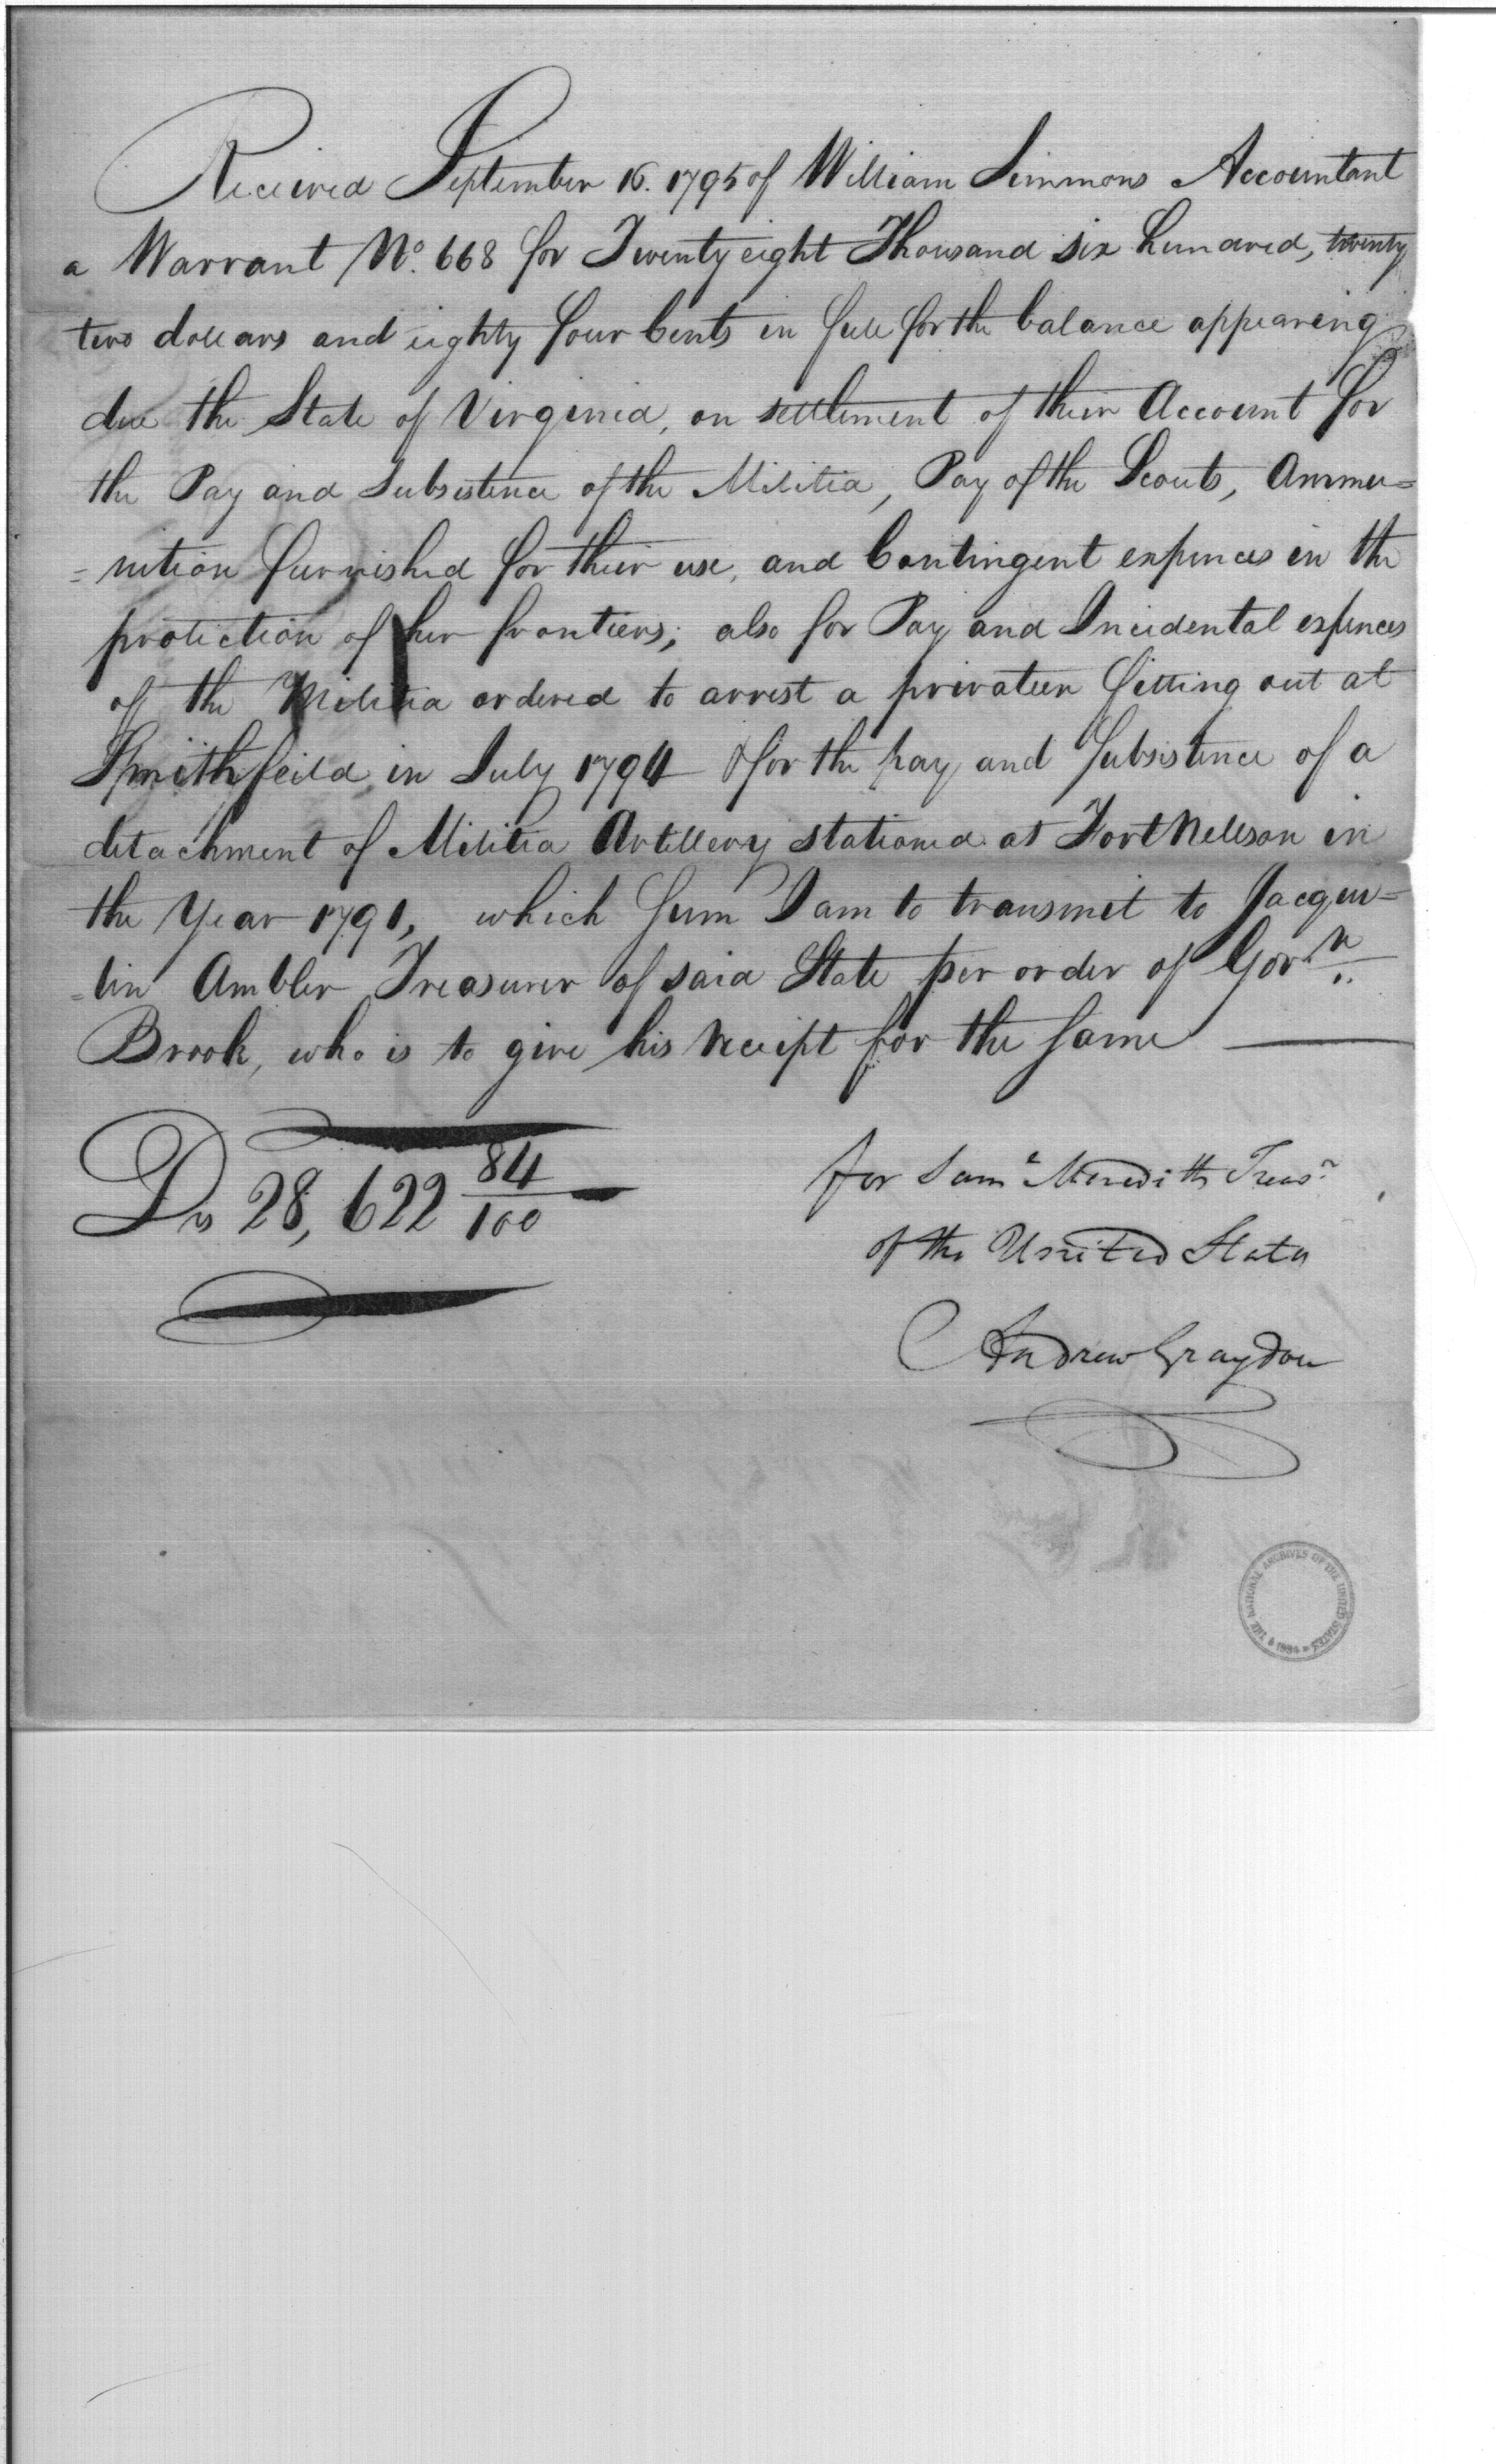 Received September 16. 1795 of William Simmons Accountant
a Warrant No. 668 for Twenty eight Thousand six hundred, twenty
two dollars and eighty four Cents in full for the balance appearing
due the State of Virginia, on settlement of their Account for
the Pay and Subsistence of the Militia, Pay of the Scouts, Ammu=
=nition furnished for their use, and Contingent expences in the
protection of her frontiers; also for Pay and Incidental expences
of the Militia ordered to arrest a privateer fitting out at
Smithfeild in July 1794 & for the pay and Subsistence of a
detachment of Militia Artillery stationed at Fort Nellson in
the Year 1791, which Sum I am to transmit to Jacque=
=lin Ambler Treasurer of said State per order of Gov.r
Brook, who is to give his receipt for the same
Ds 28,622 84/100
for Saml Meredith Treasr
of the United States
Andrew Graydon
THE NATIONAL ARCHIVES OF THE UNITED STATES
1934